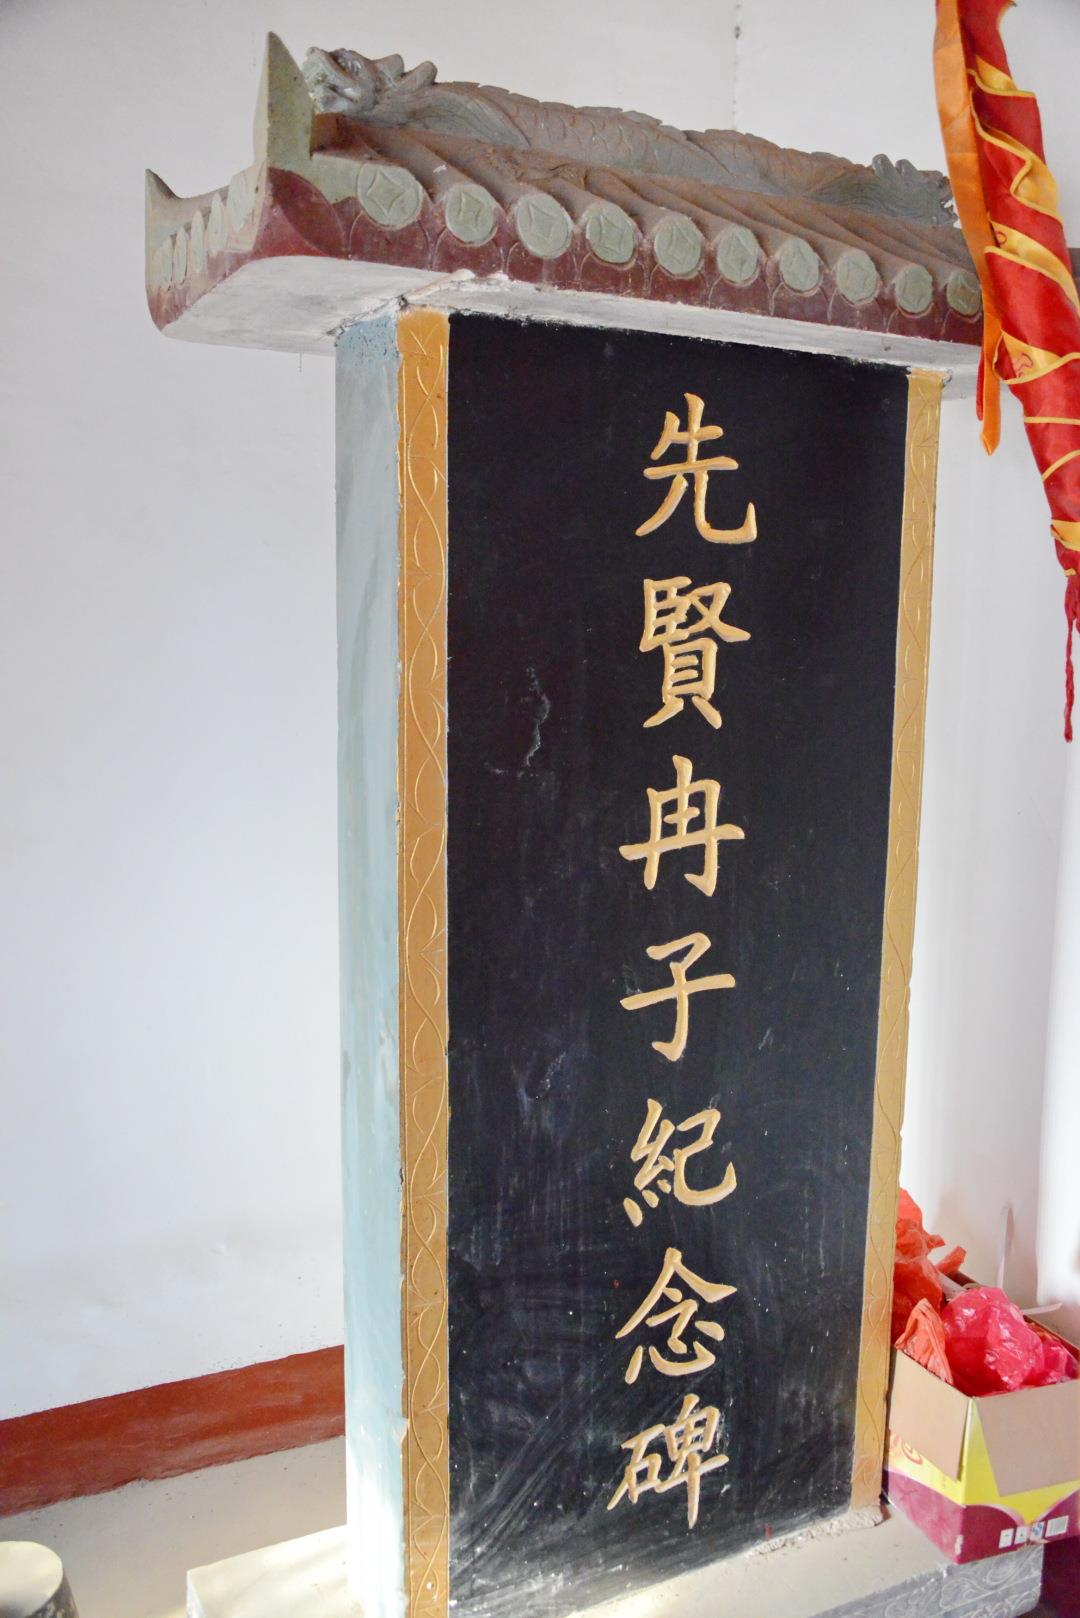 先賢冉子紀念碑